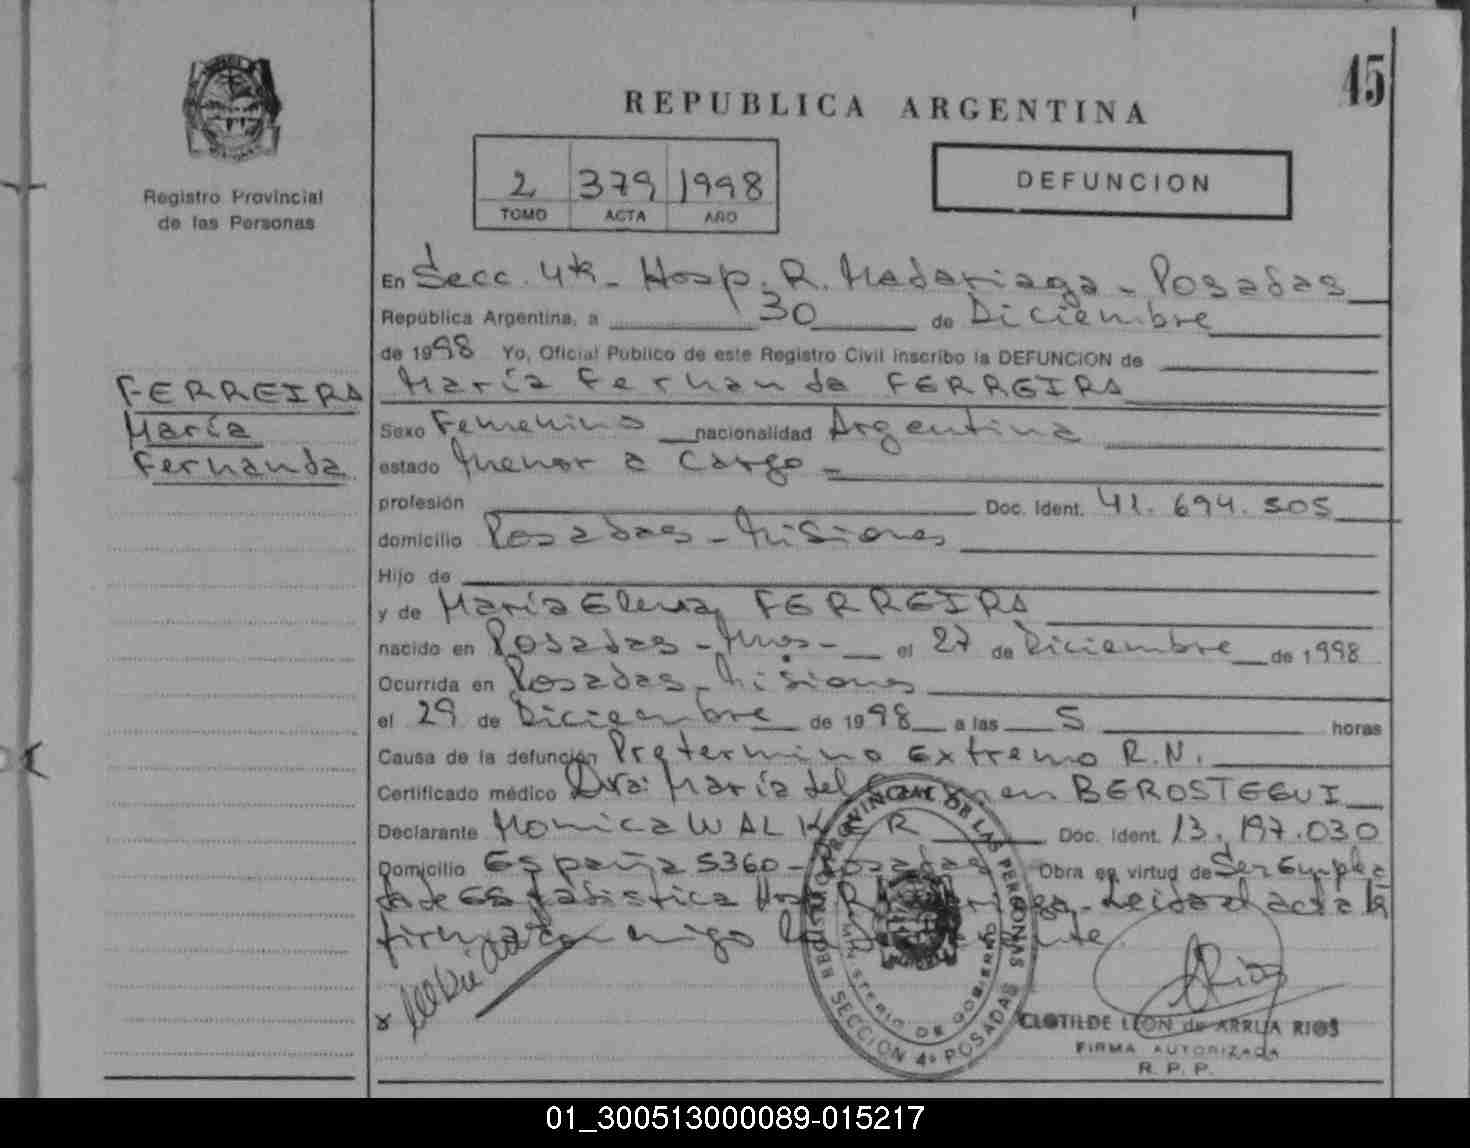 45
REPUBLICA ARGENTINA
2 379 1998
TOMO ACTA AÑO
DEFUNCION
Registro Provincial
de las Personas
FERREIRA
María
Fernanda
En Secc. 4ta - Hosp. R. Madariaga - Posadas
República Argentina, a 30 de Diciembre
de 1998 Yo, Oficial Público de este Registro Civil inscribo la DEFUNCION de
María Fernanda FERREIRA
Sexo Femenino nacionalidad Argentina
estado Menor a cargo -
profesión Doc. Ident. 41.694.505
domicilio Posadas - Misiones
Hijo de
y de María Elena FERREIRA
nacido en Posadas - Mnes - el 27 de Diciembre de 1998
Ocurrida en Posadas - Misiones
el 29 de Diciembre de 1998 a las 5 horas
Causa de la defunción Pretermino Extremo R.N.
Certificado médico Dra: María del Carmen BEROSTEGUI
Declarante Monica WALKER Doc. Ident. 13.197.030
Domicilio España 5360 - Posadas Obra en virtud de Ser Emplea
da de Estadistica Hosp. R. Madariaga - Leida el acta la
firma conmigo la
REGISTRO PROVINCIAL DE LAS PERSONAS
MINISTERIO DE GOBIERNO
SECCION 4ª POSADAS
CLOTILDE LEON de ARRUA RIOS
FIRMA AUTORIZADA
R. P. P.
01_300513000089-015217